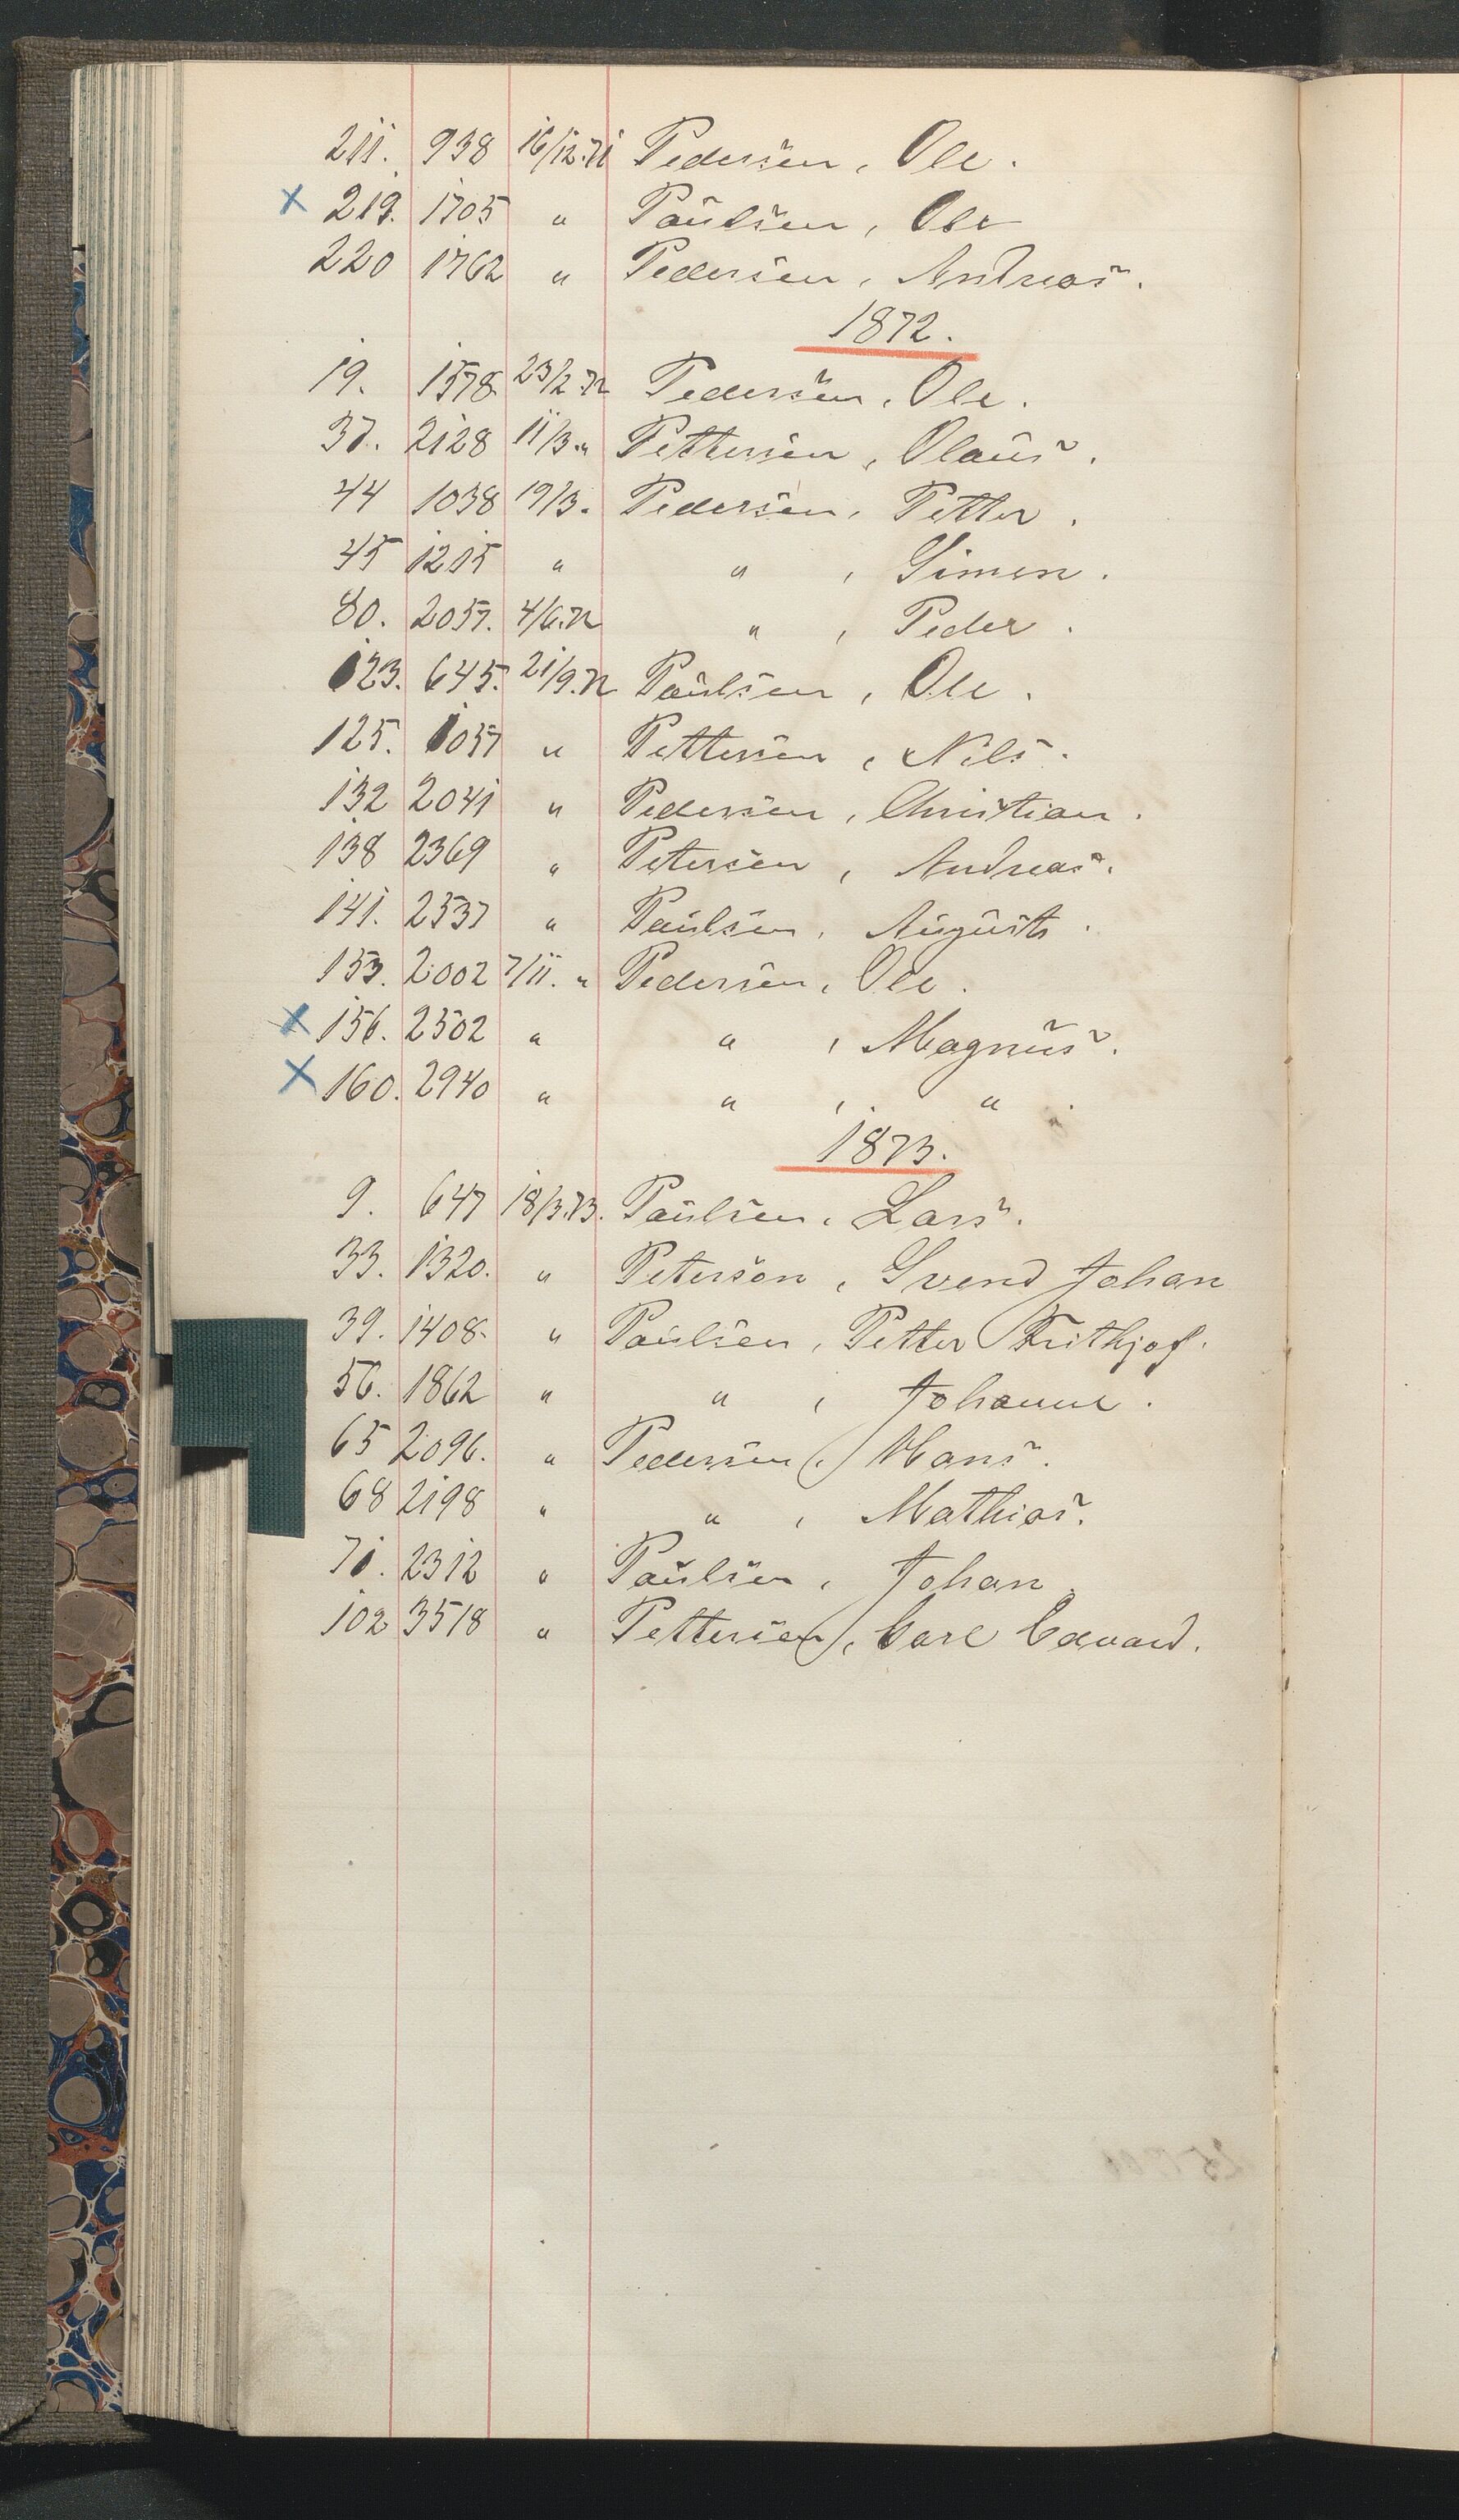 211. 938 16/12.71 Pedersen, Ole.
x 219. 1705 " Paulsen, Ole
220 1762 " Pedersen, Andreas.
1872.
19. 1578. 23/2.72 Pedersen, Ole.
37. 2128 11/3. " Pettersen, Olaus.
44 1038 19/3. Pedersen, Petter.
45 1215 " " , Simen.
80. 2057. 4/6.72 " , Peder.
123. 645. 21/9.72 Paulsen, Ole.
125. 1037 " Pettersen, Nils.
132 2041 " Pedersen, Christian.
138 2369 " Petersen, Andreas.
141. 2537 " Paulsen, Augusta.
153. 2002 7/11. " Pedersen, Ole.
x 156. 2502 " " , Magnus.
x 160. 2940 " " , " .
1873.
9. 647 18/3.73. Paulsen, Lars.
33. 1320. " Peterson, Svend Johan
39. 1408. " Paulsen, Petter Frithjof.
56. 1862 " " , Johanne.
65 2096. " Pedersen, Hans.
68 2198 " " , Mathias.
71. 2312 " Paulsen, Johan.
102 3518 " Pettersen, Carl Edvard.